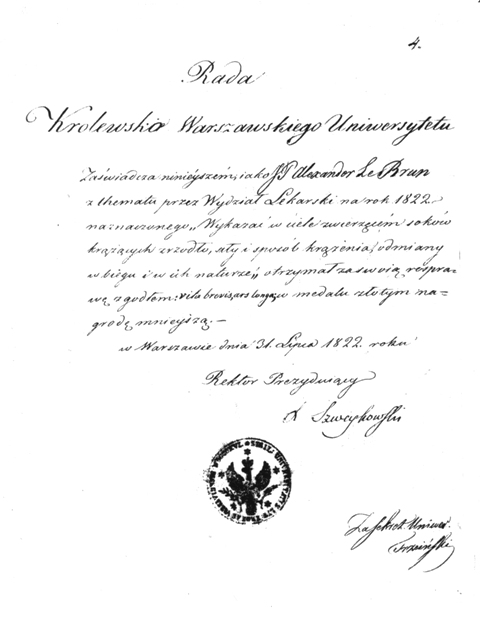 4.
Rada
Krolewsko Warszawskiego Uniwersytetu
Zaświadcza ninieyszem, iako JP Alexander Le Brun
z thematu przez Wydział Lekarski na rok 1822
naznaczonego „Wykazać w ciele zwierzęcém soków
krążących zrzodło, siły i sposób krążenia, odmiany
w biegu i w ich naturze„ otrzymał za swoią rospra-
wę z godłem: vita brevis, ars longa, w medalu złotym na-
grodę mnieyszą. —
w Warszawie dnia 31. Lipca 1822. roku
Rektor Prezyduiący
X Szweykowski
Za Sekret. Uniwer.
Trzciński